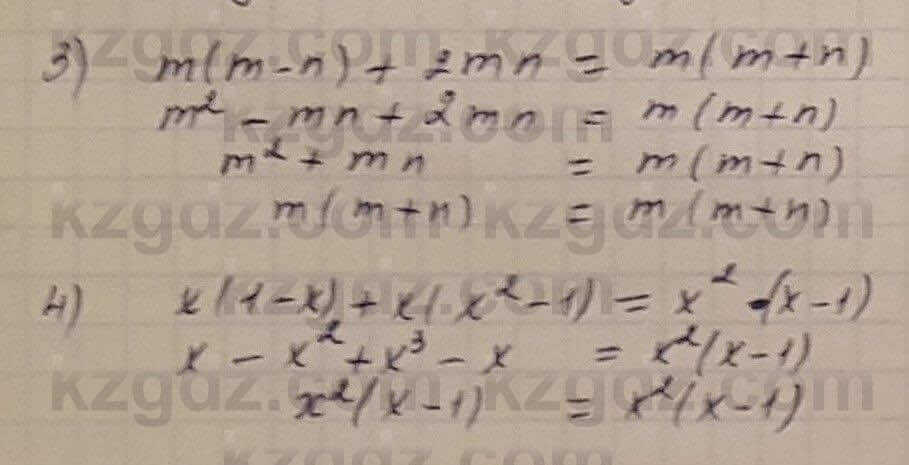 3) m(m-n) + 2mn = m(m+n)
m² - mn + 2mn = m(m+n)
m² + mn = m(m+n)
m(m+n) = m(m+n)
4) x(1-x) + x(x²-1) = x² · (x-1)
x - x² + x³ - x = x²(x-1)
x²(x-1) = x²(x-1)
kzgdz.com kzgdz.com
kzgdz.com
kzgdz.com kzgdz.com
kzgdz.com
kzgdz.com kzgdz.com